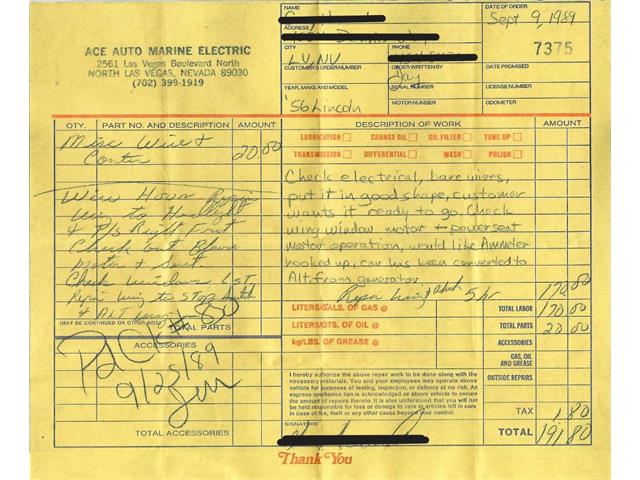 ACE AUTO MARINE ELECTRIC
2561 Las Vegas Boulevard North
NORTH LAS VEGAS, NEVADA 89030
(702) 399-1919
NAME
ADDRESS
CITY
LV, NV
PHONE
CUSTOMER'S ORDER NUMBER
ORDER WRITTEN BY
Jay
YEAR, MAKE AND MODEL
'56 Lincoln
SERIAL NUMBER
MOTOR NUMBER
DATE OF ORDER
Sept 9, 1989
7375
DATE PROMISED
LICENSE NUMBER
ODOMETER
QTY. PART NO. AND DESCRIPTION AMOUNT
Misc Wire +
20.00
Wire Horn Repair
wiring to Headlight
& P/S Right Front
Check out Blower
Motor &
Check windows
Repair wiring to Stop
& Alt
(MAY BE CONTINUED ON OTHER SIDE)
TOTAL PARTS
ACCESSORIES
9/23/89
TOTAL ACCESSORIES
DESCRIPTION OF WORK AMOUNT
LUBRICATION CHANGE OIL OIL FILTER TUNE UP
TRANSMISSION DIFFERENTIAL WASH POLISH
Check electrical, bare wires,
put it in good shape, customer
wants it ready to go. Check
wing window motor + power seat
motor operation, would like Ammeter
hooked up, car has been converted to
Alt. from generator.
Repair wiring 5 hr 170.00
LITERS/GALS. OF GAS @
TOTAL LABOR 170.00
LITERS/QTS. OF OIL @
TOTAL PARTS 20.00
kg/LBS. OF GREASE @
ACCESSORIES
GAS, OIL
AND GREASE
OUTSIDE REPAIRS
I hereby authorize the above repair work to be done along with the
necessary materials. You and your employees may operate above
vehicle for purposes of testing, inspection, or delivery at my risk. An
express mechanics lien is acknowledged on above vehicle to secure the
amount of repairs thereto. It is also understood that you will not
be held responsible for loss or damage to cars or articles left in cars
in case of fire, theft or any other cause beyond your control.
TAX 1.80
SIGNATURE
TOTAL 191.80
Thank You